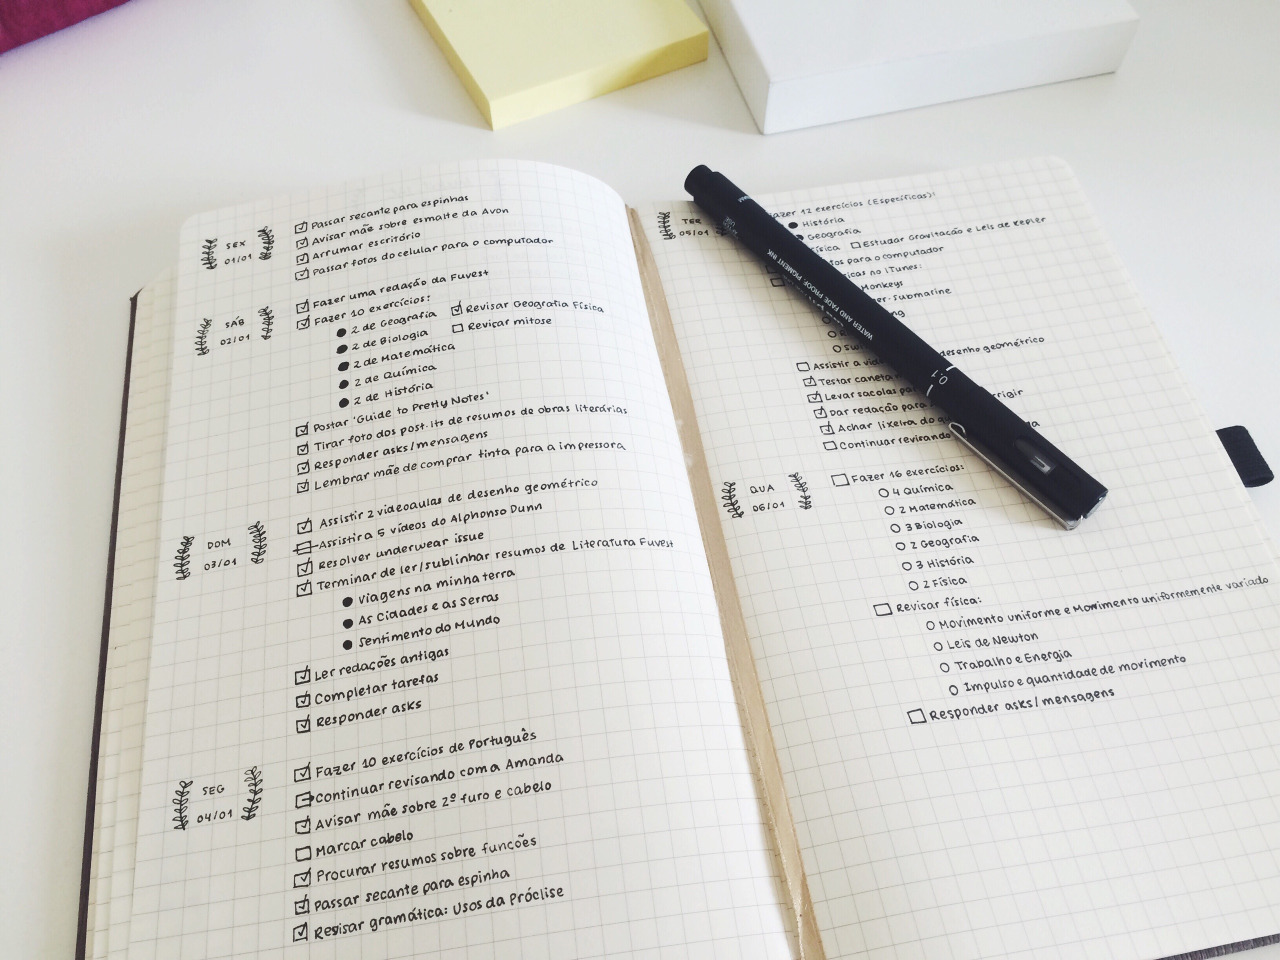 SEX
01/01
Passar secante para espinhas
Avisar mãe sobre esmalte da Avon
Arrumar escritório
Passar fotos do celular para o computador
SÁB
02/01
Fazer uma redação da Fuvest
Fazer 10 exercícios:
2 de Geografia
Revisar Geografia Física
2 de Biologia
Revisar mitose
2 de Matemática
2 de Química
2 de História
Postar 'Guide to Pretty Notes'
Tirar foto dos post.its de resumos de obras literárias
Responder asks/mensagens
Lembrar mãe de comprar tinta para a impressora
DOM
03/01
Assistir 2 videoaulas de desenho geométrico
Assistir a 5 vídeos do Alphonso Dunn
Resolver underwear issue
Terminar de ler/sublinhar resumos de Literatura Fuvest
Viagens na minha terra
As Cidades e as Serras
Sentimento do Mundo
Ler redações antigas
Completar tarefas
Responder asks
SEG
04/01
Fazer 10 exercícios de Português
Continuar revisando com a Amanda
Avisar mãe sobre 2º furo e cabelo
Marcar cabelo
Procurar resumos sobre funcões
Passar secante para espinha
Revisar gramática: Usos da Próclise
TER
05/01
Fazer 12 exercícios (Específicas):
História
Geografia
Física
Estudar Gravitação e Leis de Kepler
para o computador
no iTunes:
Monkeys
submarine
Assistir a
desenho geométrico
Testar
Levar sacolas
Dar redação para
Achar lixeira do
Continuar revisando
QUA
06/01
Fazer 16 exercícios:
4 Química
2 Matemática
3 Biologia
2 Geografia
3 História
2 Física
Revisar física:
Movimento uniforme e Movimento uniformemente variado
Leis de Newton
Trabalho e Energia
Impulso e quantidade de movimento
Responder asks/mensagens
WATER AND FADE PROOF PIGMENT INK
0.1